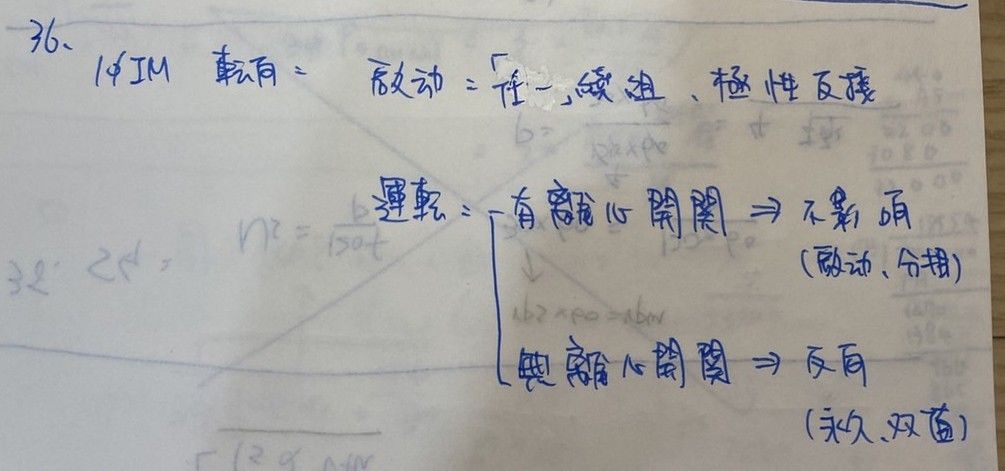 36、
1φIM 転向 = 啟动 =「任一」繞組、極性反接
運転 = 有離心開關 ⇒ 不影响
(啟动、分相)
無離心開關 ⇒ 反向
(永久、双值)